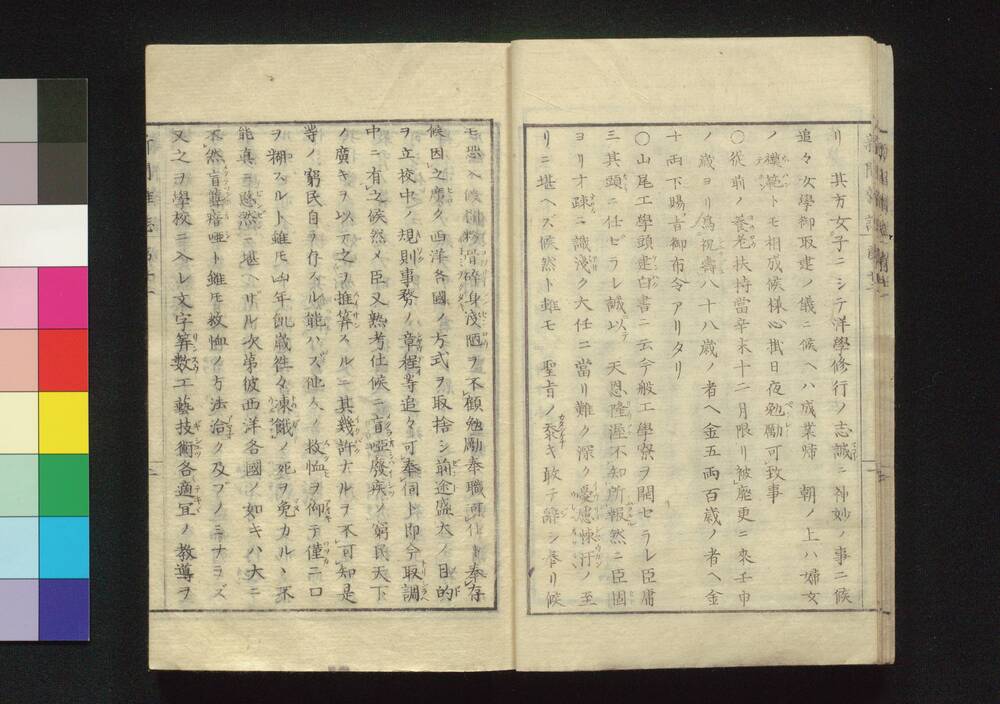 リ 其方女子ニシテ洋學修行ノ志誠ニ神妙ノ事ニ候
追々女學御取建ノ儀ニ候ヘハ成業歸 朝ノ上ハ婦女
ノ模範トモ相成候樣心掛日夜勉勵可致事
〇從前ノ養老扶持當辛未十二月限リ被廢更ニ來壬申
ノ歳ヨリ爲祝壽八十八歳ノ者ヘ金五両百歳ノ者ヘ金
十両下賜旨御布令アリタリ
〇山尾工學頭建白書ニ云今般工學寮ヲ開セラレ臣庸
三其頭ニ任ゼラレ誠以テ 天恩隆渥不知所報然ニ臣固
ヨリ才疎ニ識淺ク大任ニ當リ難ク深ク憂慮悚汗ノ至
リニ堪ヘズ候然ト雖モ 聖旨ノ忝キ敢テ辭シ奉リ候
モ恐入候 粉骨碎身淺陋ヲ不顧勉勵奉職可仕ト奉存
候因之廣ク西洋各國ノ方式ヲ取捨シ前途盛大ノ目的
ヲ立校中ノ規則事務ノ章程等追々可奉伺ト即今取調
中ニ有之候然メ臣又熟考仕候ニ盲啞廢疾ノ窮民天下
ノ廣キヲ以テ之ヲ推算スルニ其幾許ナルヲ不可知是
等ノ窮民自ラ存スル能ハズ他人ノ救恤ヲ仰テ僅ニ口
ヲ糊スルト雖モ凶年飢歳往々凍餓ノ死ヲ免カルヽ不
能眞ニ愍然ニ堪ヘザル次第彼西洋各國ノ如キハ大ニ
不然盲聾瘖啞ト雖モ救恤ノ方法洽ク及ブノミナラズ
又之ヲ學校ニ入レ文字算數工藝技術各適冝ノ教導ヲ